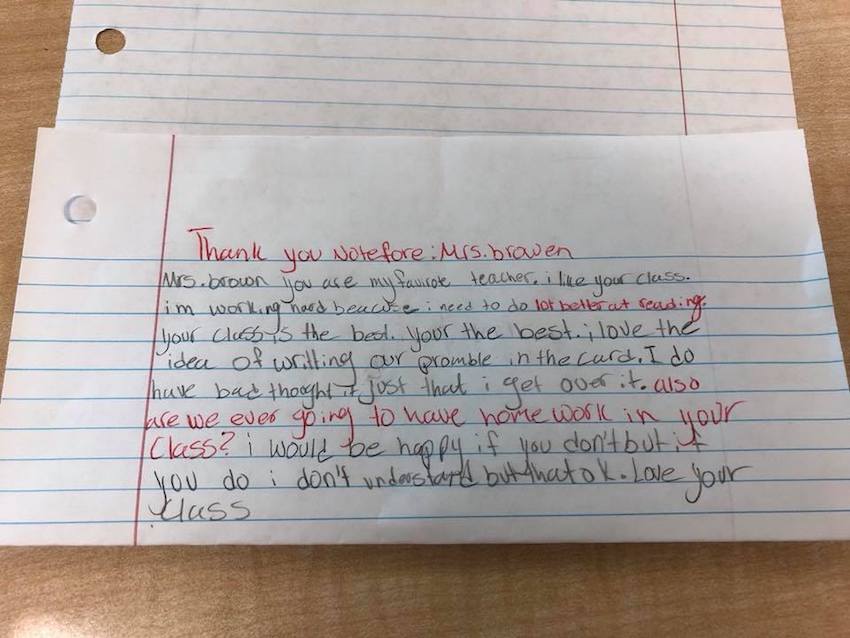 Thank you Notefore: Mrs. browen
Mrs. brown you are my favirote teacher. i like your class.
im working hard beacuse i need to do lot better at reading.
your class is the best. your the best. i love the
idea of writting our promble in the card. I do
have bad thought it just that i get over it. also
are we ever going to have home work in your
Class? i would be happy if you don't but if
you do i don't understand but that ok. Love your
Class